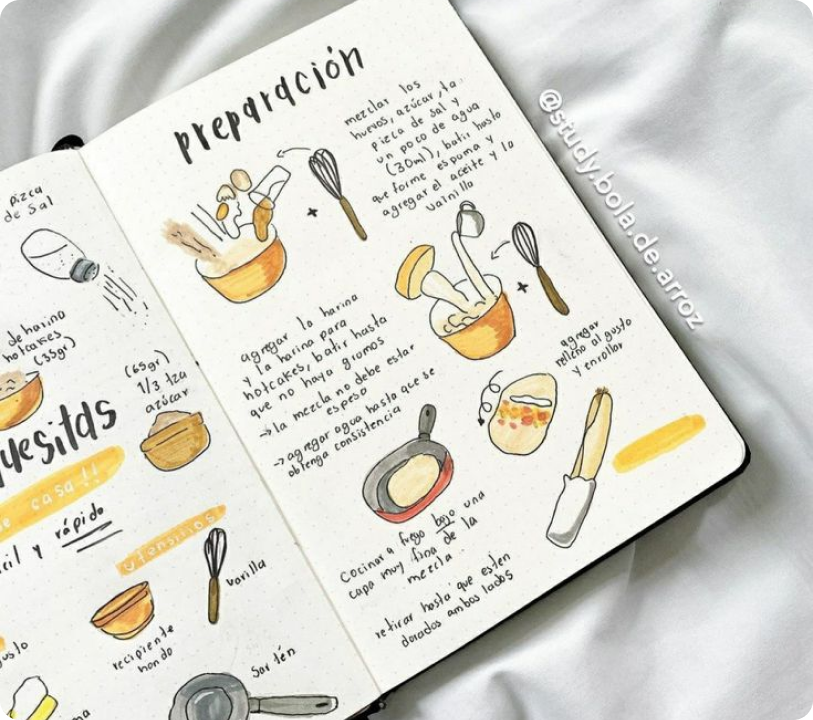 pizca
de sal
de harina
hotcakes
(35gr)
(65gr)
1/3 tza
azúcar
casa!!
y rápido
utensilios
varilla
recipiente
hondo
Sartén
preparación
mezclar los
huevos, azúcar, la
pizca de sal y
un poco de agua
(30ml), batir hasta
que forme espuma y
agregar el aceite y la
vainilla
+
agregar la harina
y la harina para
hotcakes, batir hasta
que no haya grumos
→ la mezcla no debe estar
espeso
→ agregar agua hasta que se
obtenga consistencia
+
agregar
relleno al gusto
y enrollar
Cocinar a fuego bajo una
capa muy fina de la
mezcla.
retirar hasta que esten
dorados ambos lados
@study.bola.de.arroz